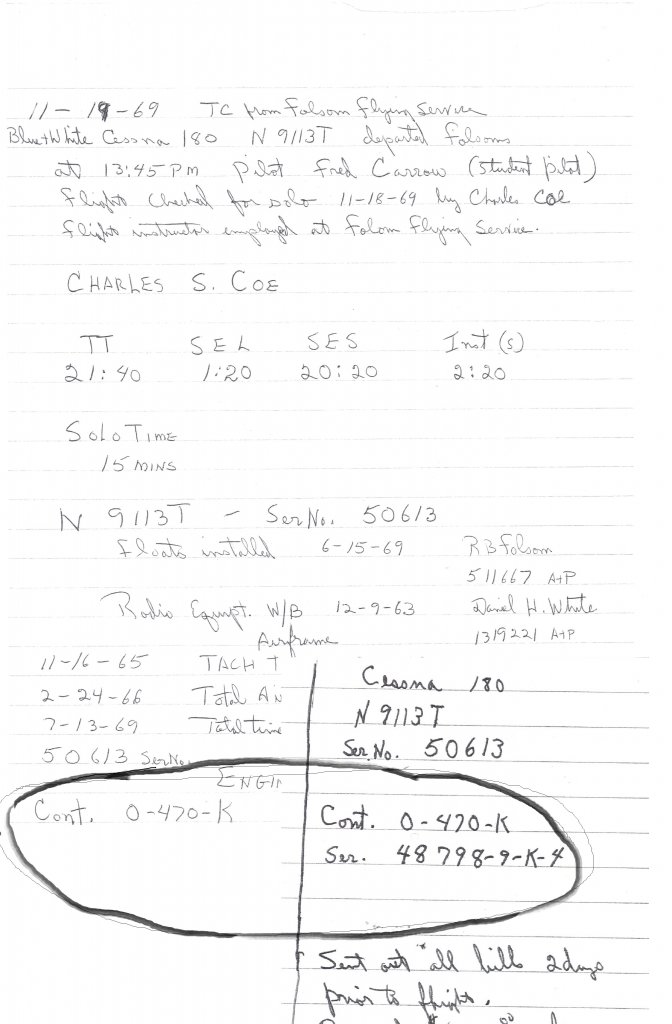 11-19-69 TC from Folsom Flying Service
Blue+White Cessna 180 N 9113T departed Folsoms
at 13:45 PM pilot Fred Carrow (student pilot)
flight checked for solo 11-18-69 by Charles Coe
flight instructor employed at Folsom Flying Service.
CHARLES S. COE
TT SEL SES Inst (s)
21:40 1:20 20:20 2:20
SOLO TIME
15 MINS
N 9113T - Ser No. 50613
Floats installed 6-15-69 RB Folsom
511667 A+P
Radio Equipt. W/B 12-9-63 Daniel H. White
1319221 A+P
Airframe
11-16-65 TACH T
2-24-66 Total
7-13-69 Total time
50613 Ser No.
ENGI
Cont. O-470-K
Cessna 180
N 9113T
Ser. No. 50613
Cont. O-470-K
Ser. 48798-9-K-4
Sent out "all bills 2 days
prior to flight.